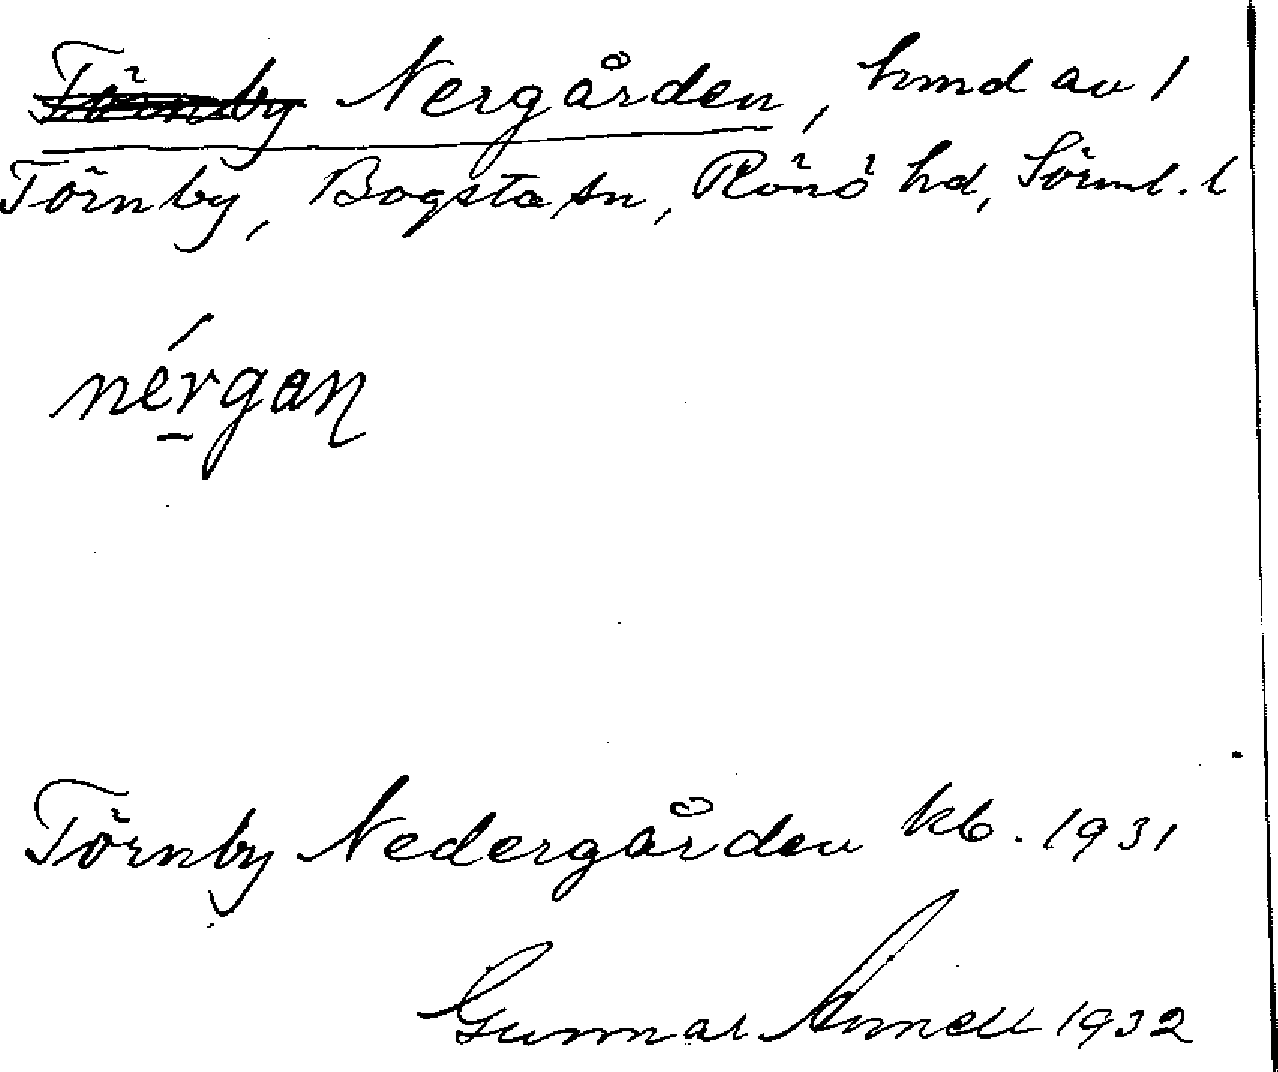 Törnby Nergården, hmd av 1
Törnby, Bogsta sn, Rönö hd, Sörml. l
nérgaɳ
Törnby Nedergården kb. 1931
Gunnar Annell 1932